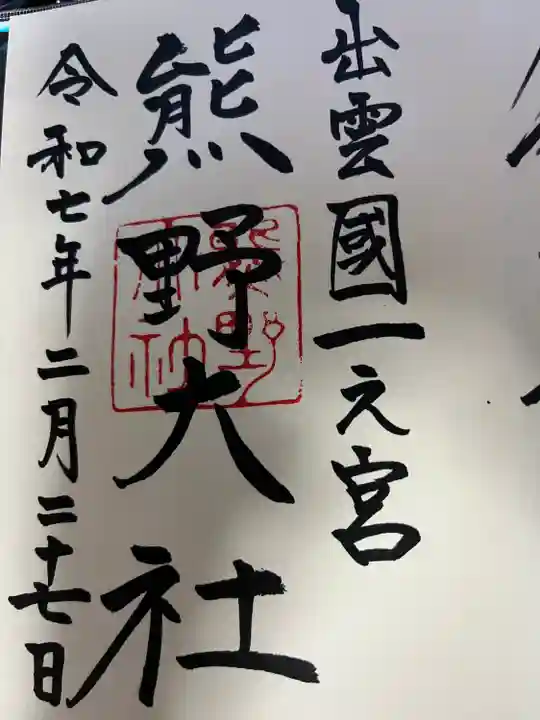 出雲國一之宮
熊野大社
熊野
大社
令和七年二月二十七日